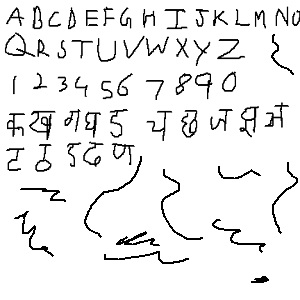 ABCDEFGHIJKLMNO
QRSTUVWXYZ
1234567890
क ख ग घ ड च छ ज झ
ट ठ ड ढ ण